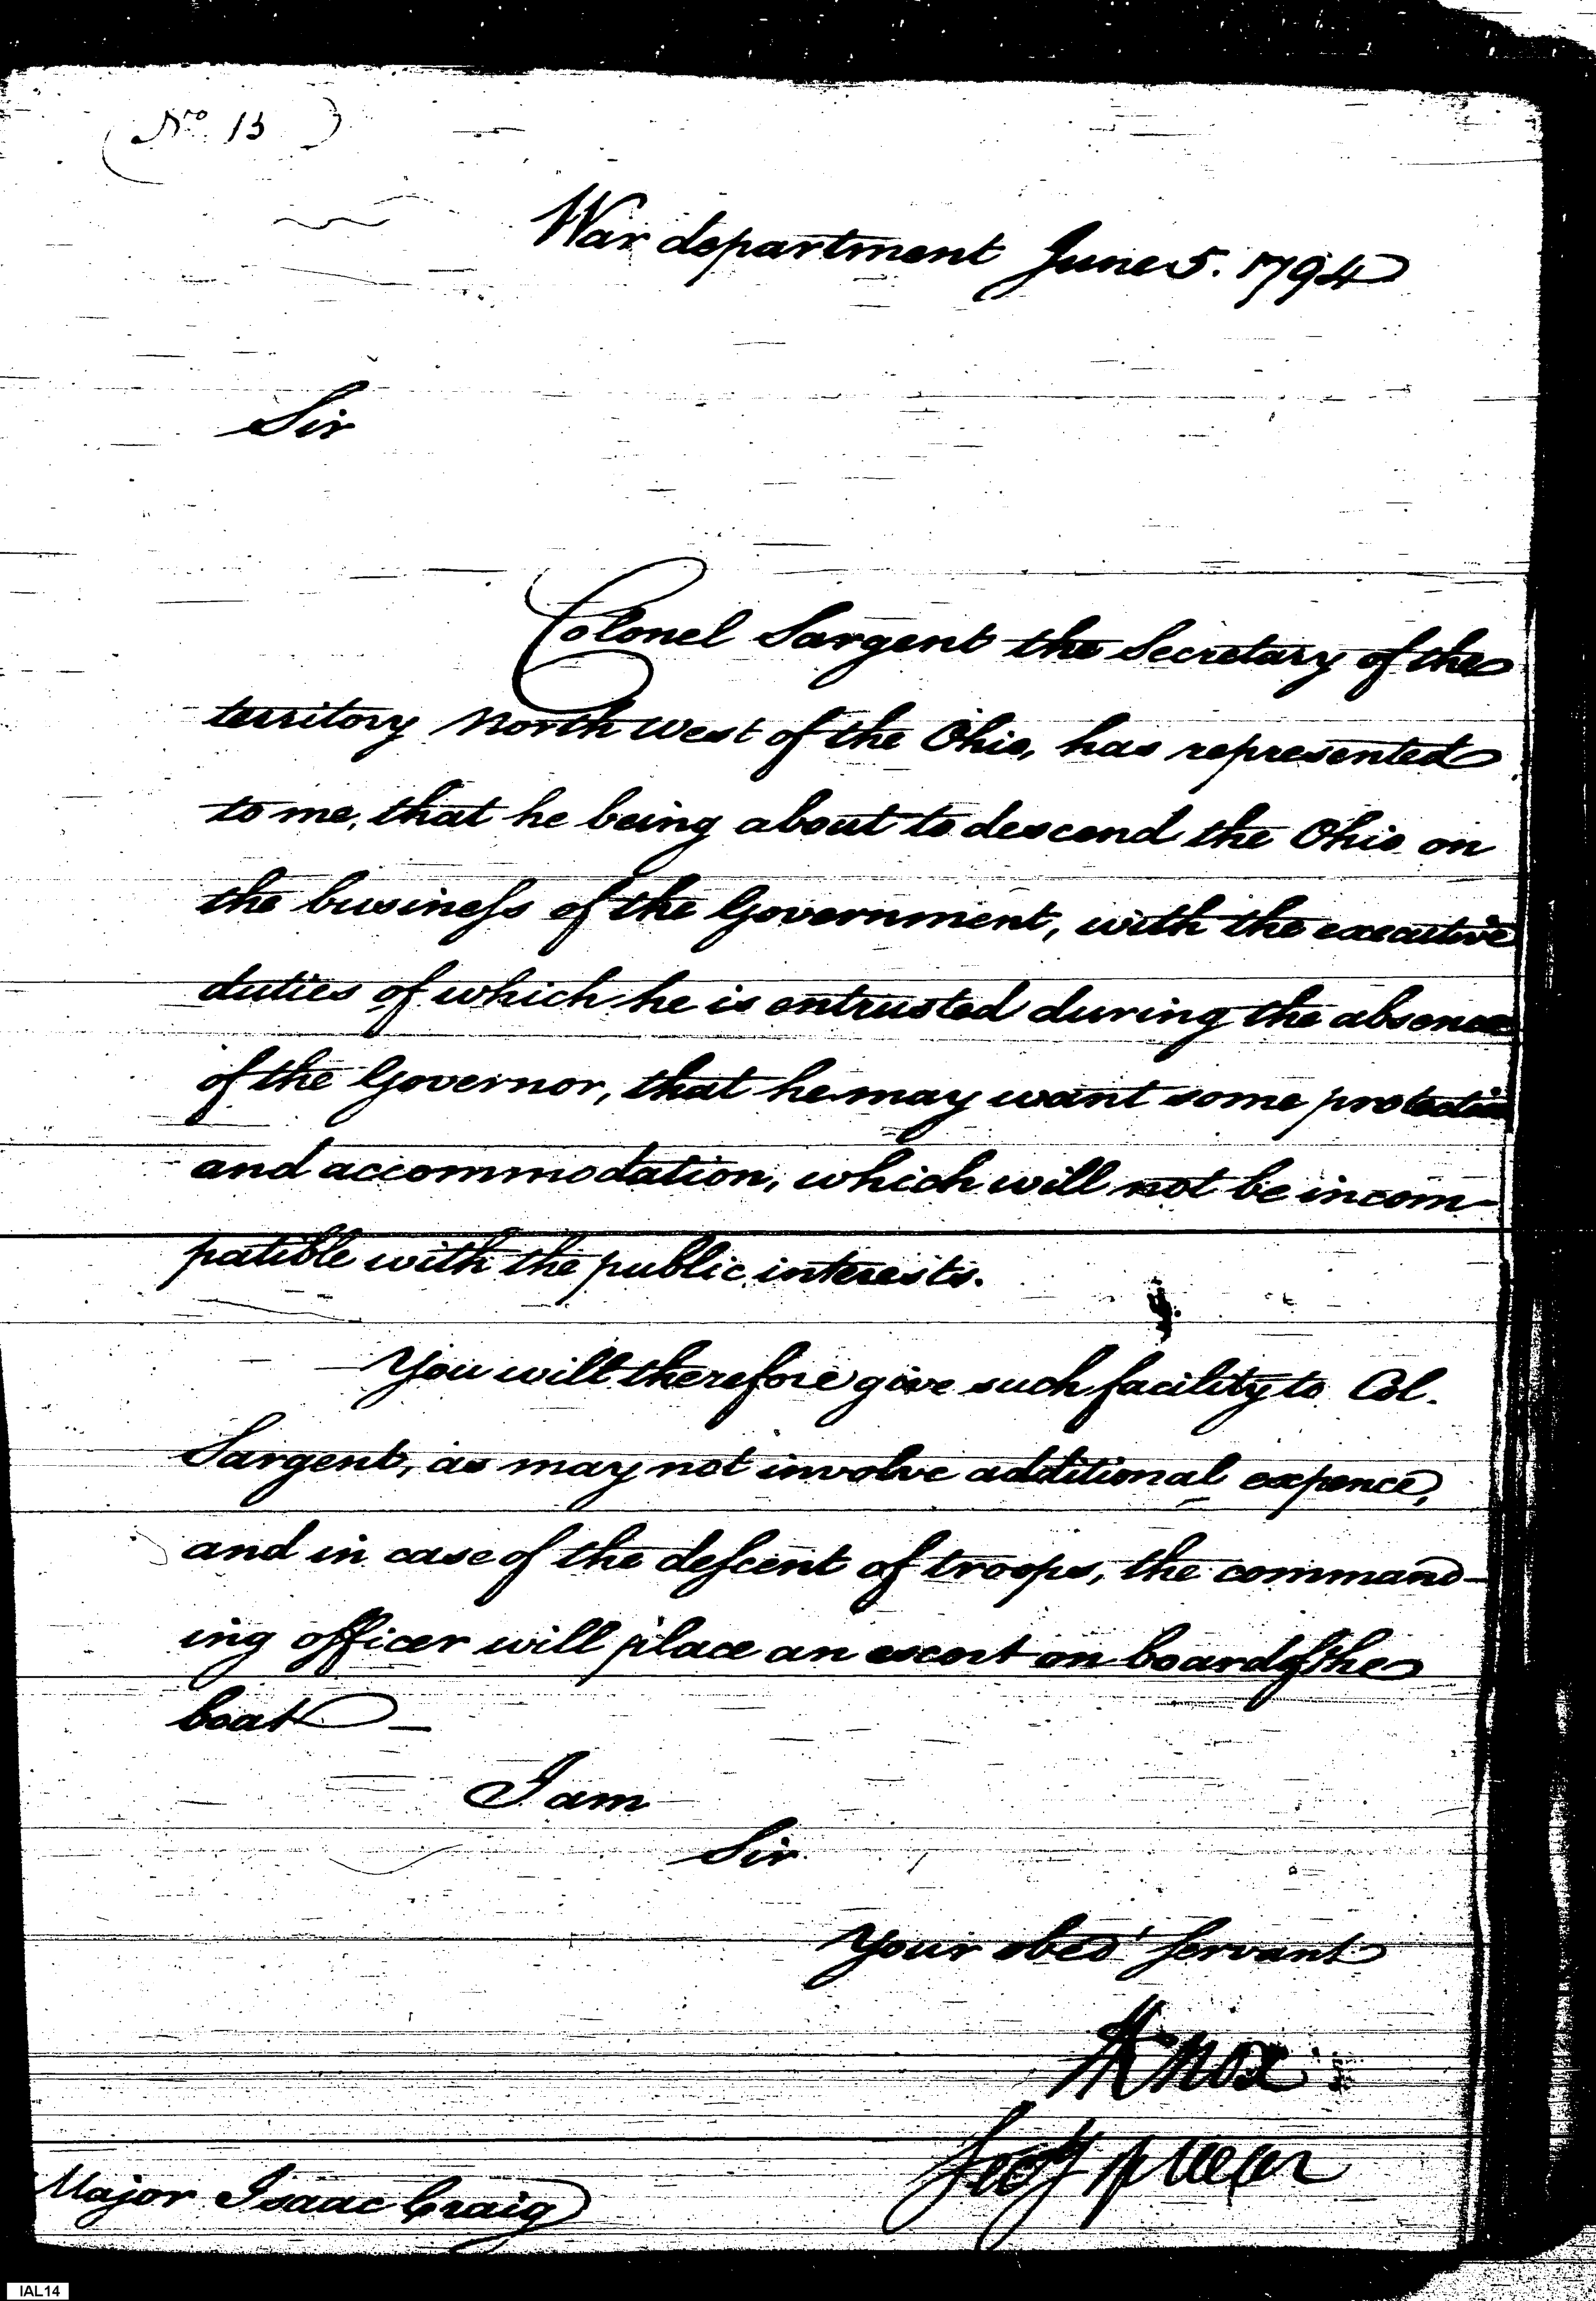 (No. 13)
War department June 5. 1794
Sir
Colonel Sargent the Secretary of the
territory North West of the Ohio, has represented
to me, that he being about to descend the Ohio on
the business of the Government, with the executive
duties of which he is entrusted during the absence
of the Governor, that he may want some protection
and accommodation, which will not be incom-
patible with the public interests.
You will therefore give such facility to Col.
Sargent, as may not involve additional expence,
and in case of the descent of troops, the command-
ing officer will place an escort on board of the
boat —
I am
Sir
Your obed' servant
HKnox
Secy of War
Major Isaac Craig
IAL14